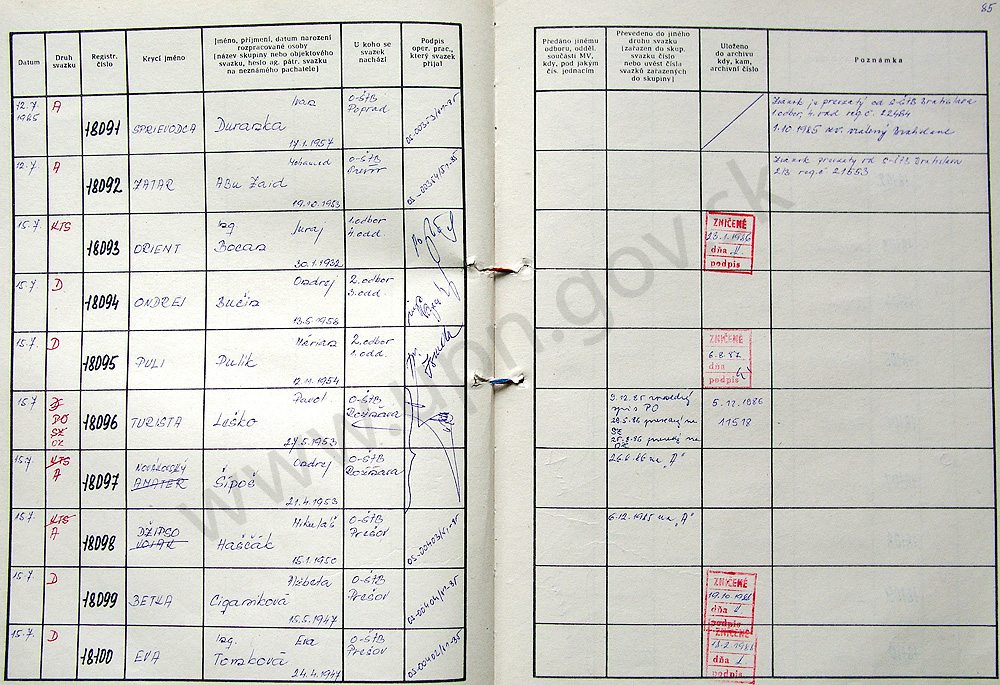 85
Datum
Druh svazku
Registr. číslo
Krycí jméno
Jméno, příjmení, datum narození rozpracované osoby (název skupiny nebo objektového svazku, heslo ag. pátr. svazku na neznámého pachatele)
U koho se svazek nachází
Podpis oper. prac., který svazek přijal
Předáno jinému odboru, odděl. součásti MV, kdy, pod jakým čís. jednacím
Převedeno do jiného druhu svazku (zařazen do skup. svazku číslo nebo uvést čísla svazků zařazených do skupiny)
Uloženo do archivu kdy, kam, archivní číslo
Poznámka
12.7. 1985 A 18091 SPRIEVODCA Ivan Duranska 17.1.1957 O-ŠTB Poprad
Zväzok je prevzatý od S-ŠTB Bratislava
1.odbor, 4. odd reg. č. 22464
1.10 1985
12.7. A 18092 ZATAR Mohamed Abu Zaid 19.10.1953 O-ŠTB
Zväzok prevzatý od S-ŠTB Bratislava
2/3 reg. č 21553
15.7. KTS 18093 ORIENT Ing. Juraj Bocan 30.1.1932 1.odbor 4.odd.
ZNIČENÉ
13.1.1986
dňa
podpis
15.7. D 18094 ONDREJ Ondrej Bučin 13.5.1956 2.odbor 3.odd.
15.7. D 18095 PULI Marian Pulik 12.11.1954 2.odbor 1.odd.
ZNIČENÉ
6.8.87
dňa
podpis
15.7. DO SZ OZ 18096 TURISTA Pavol Leško 27.5.1953 O-ŠTB Rožňava
9.12.85
spis PO
28.5.86
SZ
25.8.86
OZ
5.12.1986
11518
15.7. KTS A 18097 NOVÁKOVSKÝ AMATER Ondrej Šipoš 21.4.1953 O-ŠTB Rožňava
26.6.86 na „A“
15.7. KTS A 18098 DŽIPSO VOJAK Mikuláš Haščák 15.1.1950 O-ŠTB Prešov OS-00403/
6.12.1985 na „A“
15.7. D 18099 BETKA Alžbeta Cigániková 15.5.1947 O-ŠTB Prešov OS-00404/
ZNIČENÉ
19.10.1986
dňa
podpis
15.7. D 18100 EVA Ing. Eva Tomková 24.4.1947 O-ŠTB Prešov OS-00402/
ZNIČENÉ
dňa
podpis
www.upn.gov.sk